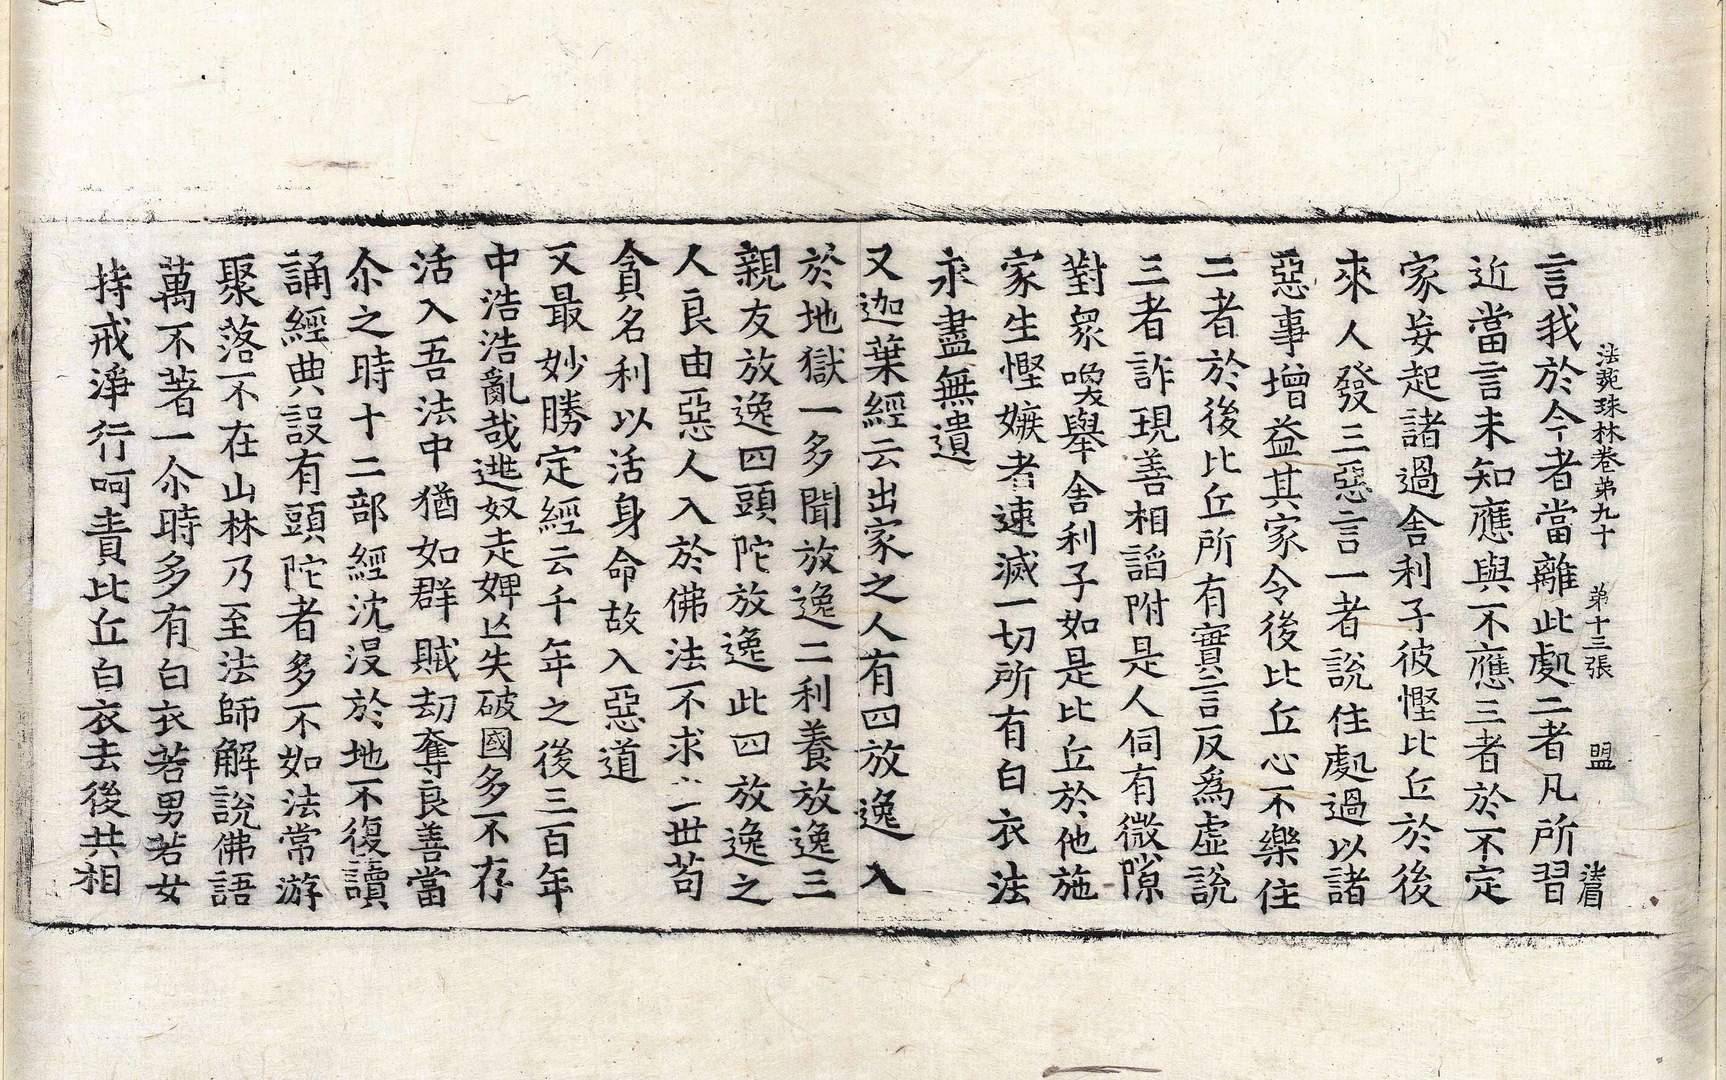 法苑珠林卷第九十 第十三張 盟 法眉
言我於今者當離此處二者凡所習
近當言未知應與不應三者於不定
家妄起諸過舍利子彼慳比丘於後
來人發三惡言一者說住處過以諸
惡事增益其家令後比丘心不樂住
二者於後比丘所有實言反爲虛說
三者詐現善相謟附是人伺有微隙
對衆喚舉舍利子如是比丘於他施
家生慳嫉者速滅一切所有白衣法
永盡無遺
又迦葉經云出家之人有四放逸入
於地獄一多聞放逸二利養放逸三
親友放逸四頭陀放逸此四放逸之
人良由惡人入於佛法不求一世苟
貪名利以活身命故入惡道
又最妙勝定經云千年之後三百年
中浩浩亂哉逃奴走婢亾失破國多不存
活入吾法中猶如群賊刧奪良善當
尒之時十二部經沈没於地不復讀
誦經典設有頭陀者多不如法常游
聚落不在山林乃至法師解說佛語
萬不著一尒時多有白衣若男若女
持戒淨行呵責比丘白衣去後共相